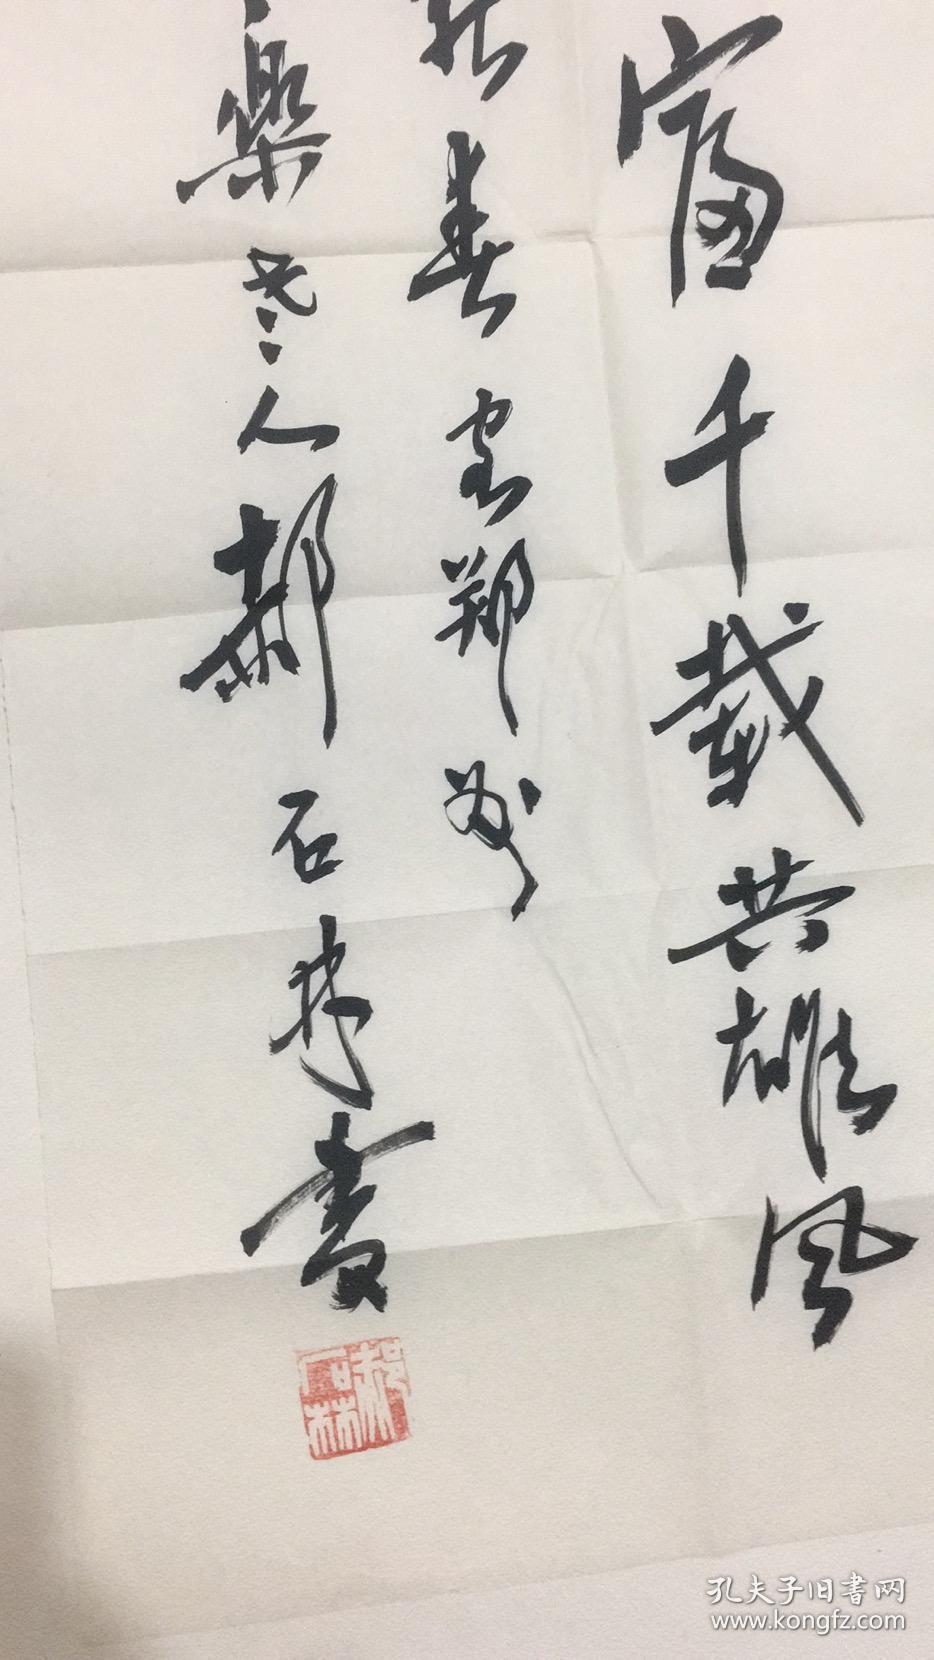 富千載共雄風
春寫鄭州
樂老人郝石林書
郝石林
孔夫子旧書网
www.kongfz.com